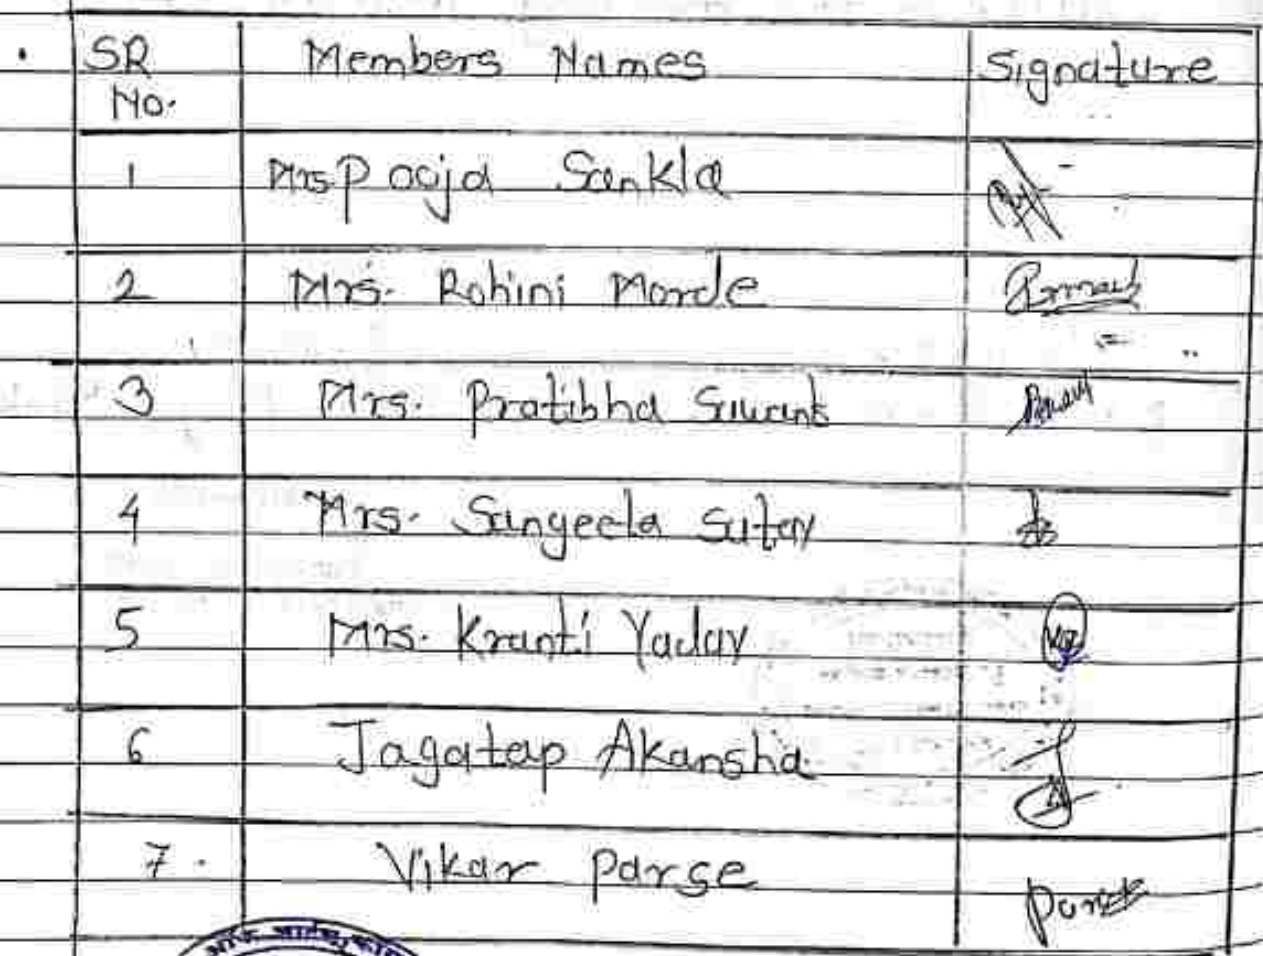 SR No. Members Names Signature
1 Mrs. Pooja Sankla
2 Mrs. Rohini Morde
3 Mrs. Pratibha Sawant
4 Mrs. Sangeeta Sutar
5 Mrs. Kranti Yadav
6 Jagatap Akansha
7. Vikar Parse